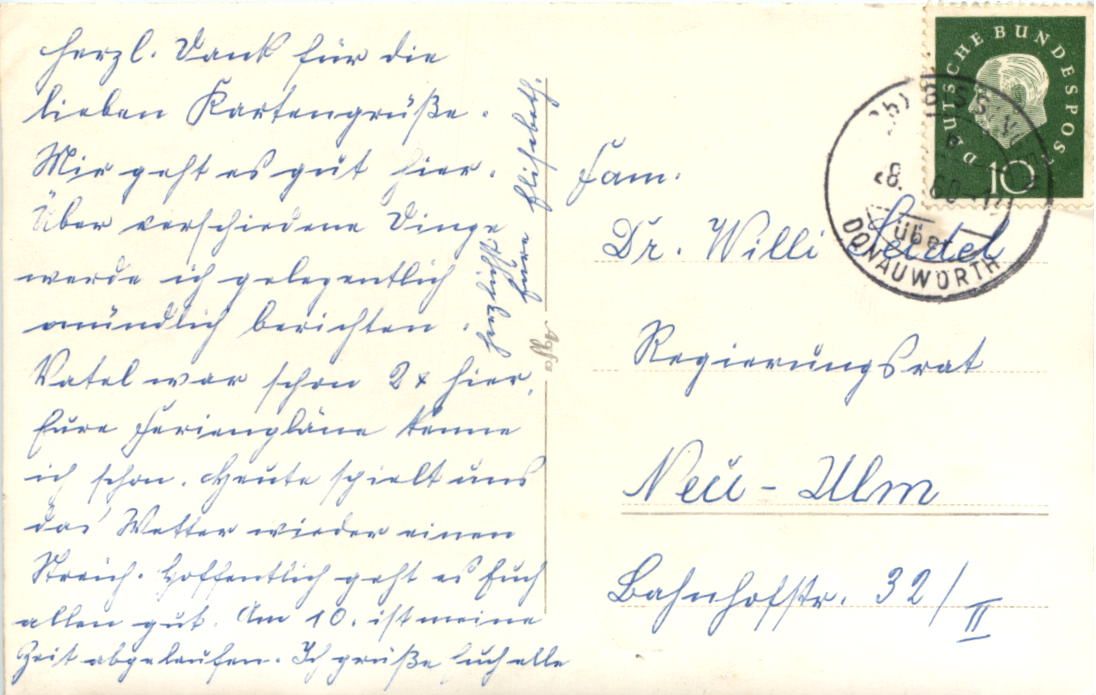 Herzl. Dank für die
lieben Kartengrüße.
Mir geht es gut hier.
Über verschiedene Dinge
werde ich gelegentlich
mündlich berichten.
Vatel war schon 2x hier.
Eure Ferienpläne kenne
ich schon. Heute spielt uns
das Wetter wieder einen
Streich. Hoffentlich geht es Euch
allen gut. Am 10. ist meine
Zeit abgelaufen. Ich grüße Euch alle
herzlichst
Eure Elisabeth.
Agfa
DEUTSCHE BUNDESPOST
10
über
DONAUWÖRTH
Fam.
Dr. Willi Seidel
Regierungsrat
Neu-Ulm
Bahnhofstr. 32/II